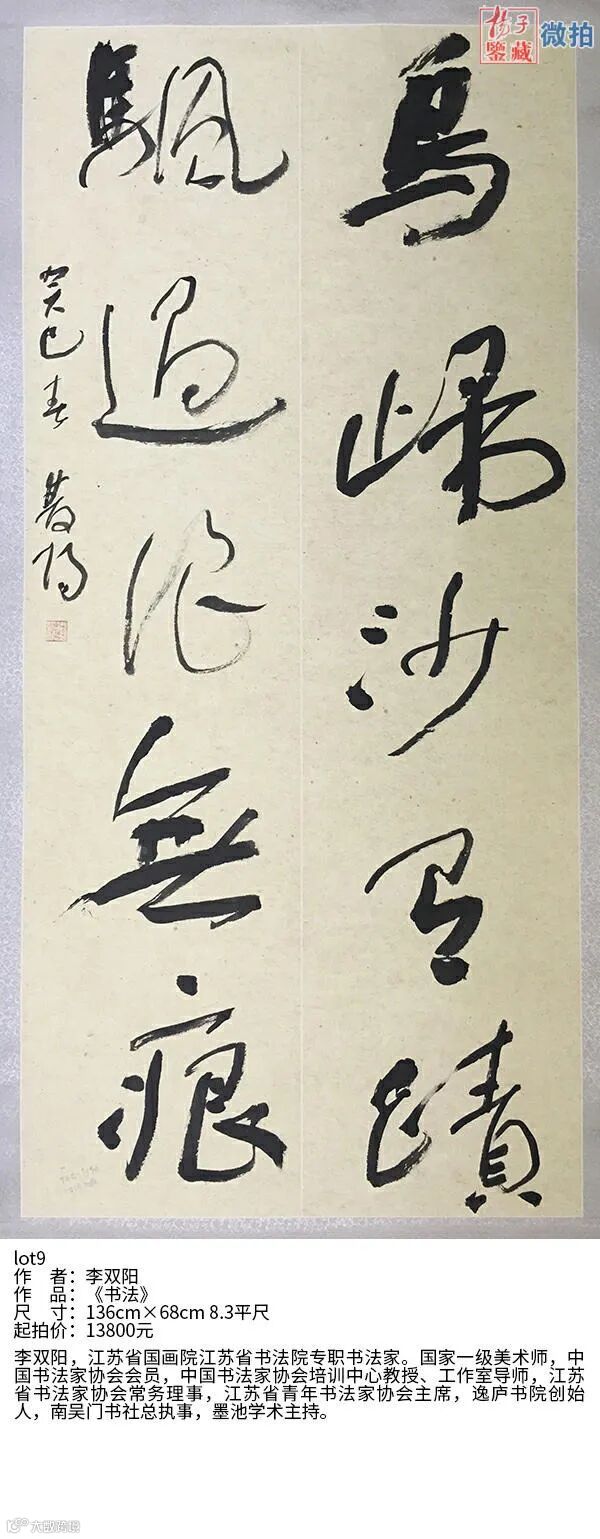 揚子
鑒藏 微拍
鳥歸沙有蹟
颿過浪無痕
癸巳春 雙陽
lot9
作 者：李双阳
作 品：《书法》
尺 寸：136cm×68cm 8.3平尺
起拍价：13800元
李双阳，江苏省国画院江苏省书法院专职书法家。国家一级美术师，中
国书法家协会会员，中国书法家协会培训中心教授、工作室导师，江苏
省书法家协会常务理事，江苏省青年书法家协会主席，逸庐书院创始
人，南吴门书社总执事，墨池学术主持。
大数跨境